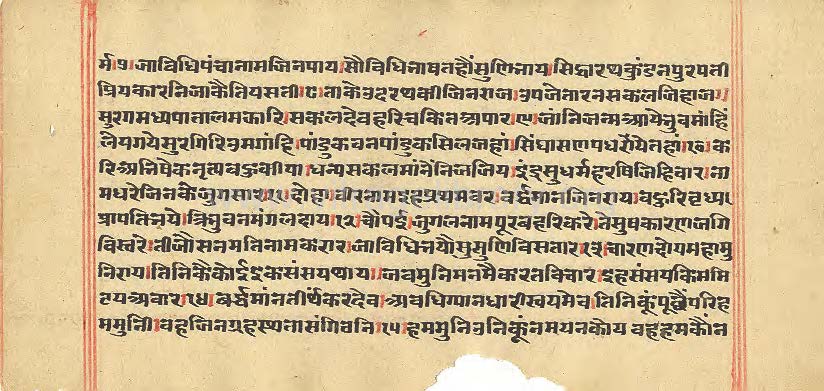 र्म।७।जाविधिपंचानामजिनपाय।सौविधिभाषतहौंसुणिनाय।सिद्धारथकुंडनपुरपती
प्रियकारनिजाकैतियसती।८।ताकेउदरथकीजिनराज।उपजेतारनसकलजिहाज।
सुरगमध्यपातालमझारि।सकलदेवहरिचकितअपार।९।जांनिजन्मआयेनुवमांहिं
लैगयेसुरगिरिवनमांहि।पांडुकवनपांडुकसिलजहां।सिंघासणपधरायेतहां।१०।क
रिअभिषेकनृत्यबहुकीया।धन्यसकलमांनेनिजजिय।इंद्रसुधर्महरषिजिहिवार।ना
मधरेजिनकेजुगसार।११।दोहा।वीरनामइहप्रथमवर।वर्द्धमानजिनराय।बहुरिवृध्य
प्रापतिभये।त्रिभुवनमंगलदाय।१२।चौपई।जुगलनामपूरवहरिकरे।तेसुषकारणजगि
विस्तरे।तीजौसनमतिनामकरार।जाविधिभयौसुसुणिविसतार।१३।चारणदोयमहामु
निराय।तिनिकैकोईइकसंसयथाय।जबमुनिमनमैकरतविचार।इहसंसयकिममि
टयअवार।१४।वर्द्धमांनतीर्थंकरदेव।अवधिग्यानधारीस्वयमेव।तिनिकूंपूछैंपरिह
ममुनी।वहजिनग्रहस्थतासंगिवनि।१५।हममुनिउनिकूंनमयनकोय वहहमकौंन